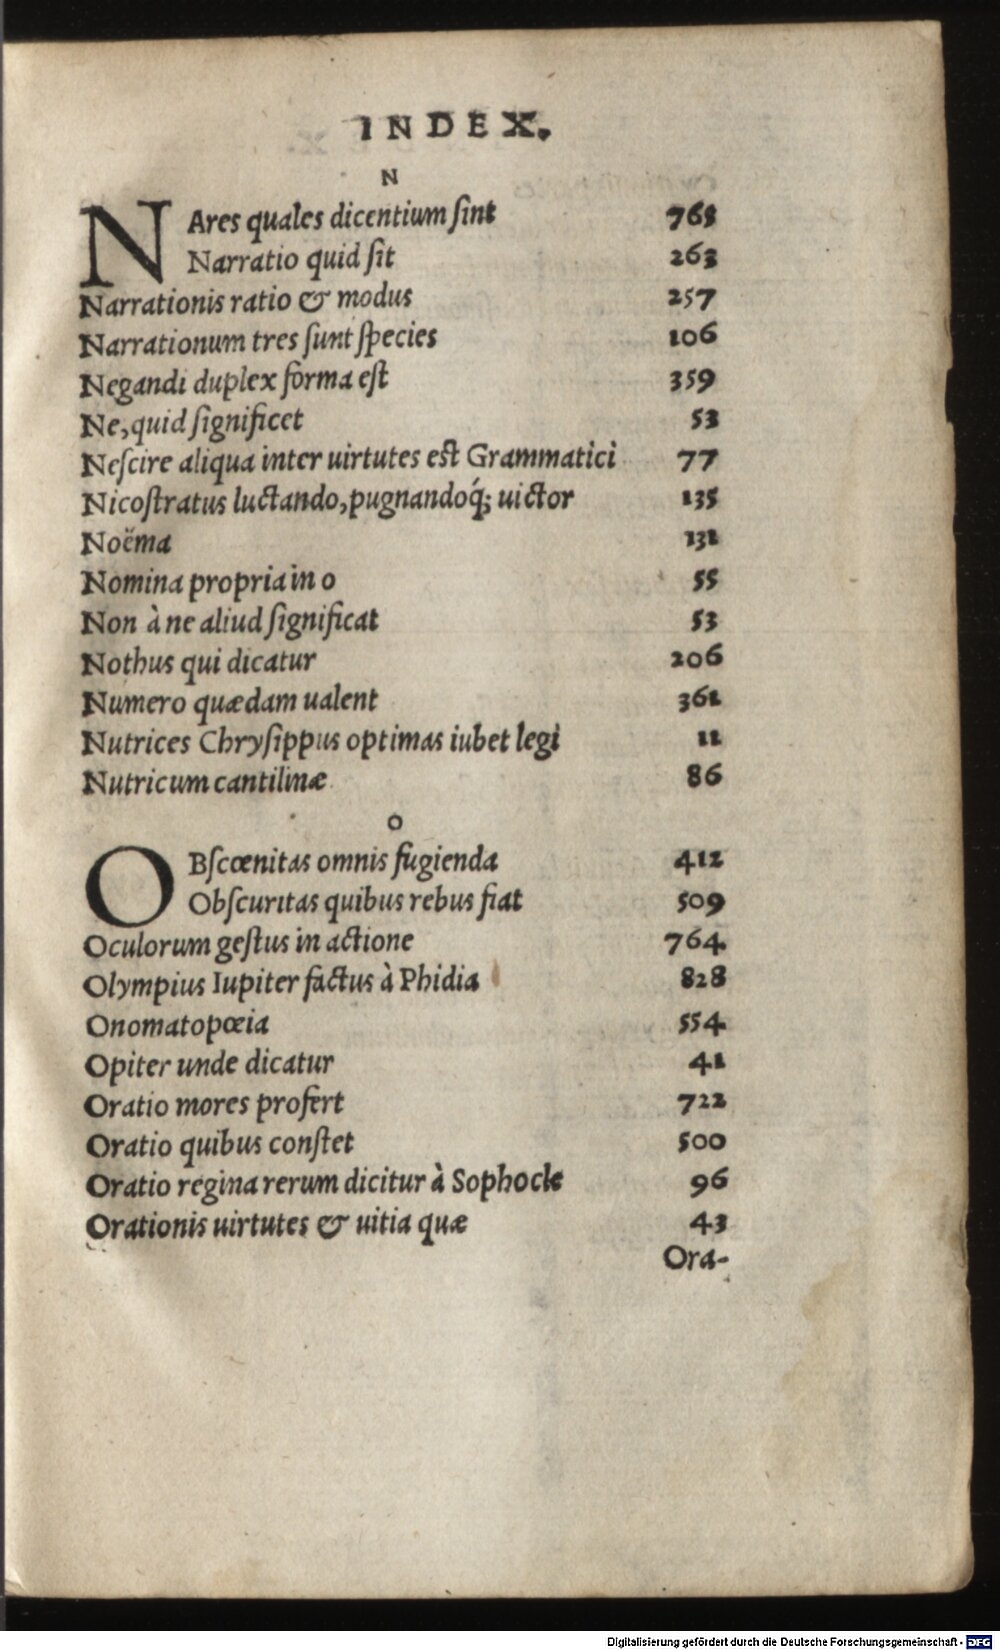 INDEX.
N
NAres quales dicentium ſint 765
Narratio quid ſit 263
Narrationis ratio & modus 257
Narrationum tres ſunt ſpecies 106
Negandi duplex forma eſt 359
Ne,quid ſignificet 53
Neſcire aliqua inter uirtutes eſt Grammatici 77
Nicoſtratus luctando,pugnandoq́; uictor 135
Noëma 131
Nomina propria in o 55
Non à ne aliud ſignificat 53
Nothus qui dicatur 206
Numero quædam ualent 361
Nutrices Chryſippus optimas iubet legi 11
Nutricum cantilinæ 86
O
OBſcœnitas omnis fugienda 412
Obſcuritas quibus rebus fiat 509
Oculorum geſtus in actione 764
Olympius Iupiter factus à Phidia 828
Onomatopœia 554
Opiter unde dicatur 41
Oratio mores profert 722
Oratio quibus conſtet 500
Oratio regina rerum dicitur à Sophocle 96
Orationis uirtutes & uitia quæ 43
Ora-
Digitalisierung gefördert durch die Deutsche Forschungsgemeinschaft - DFG